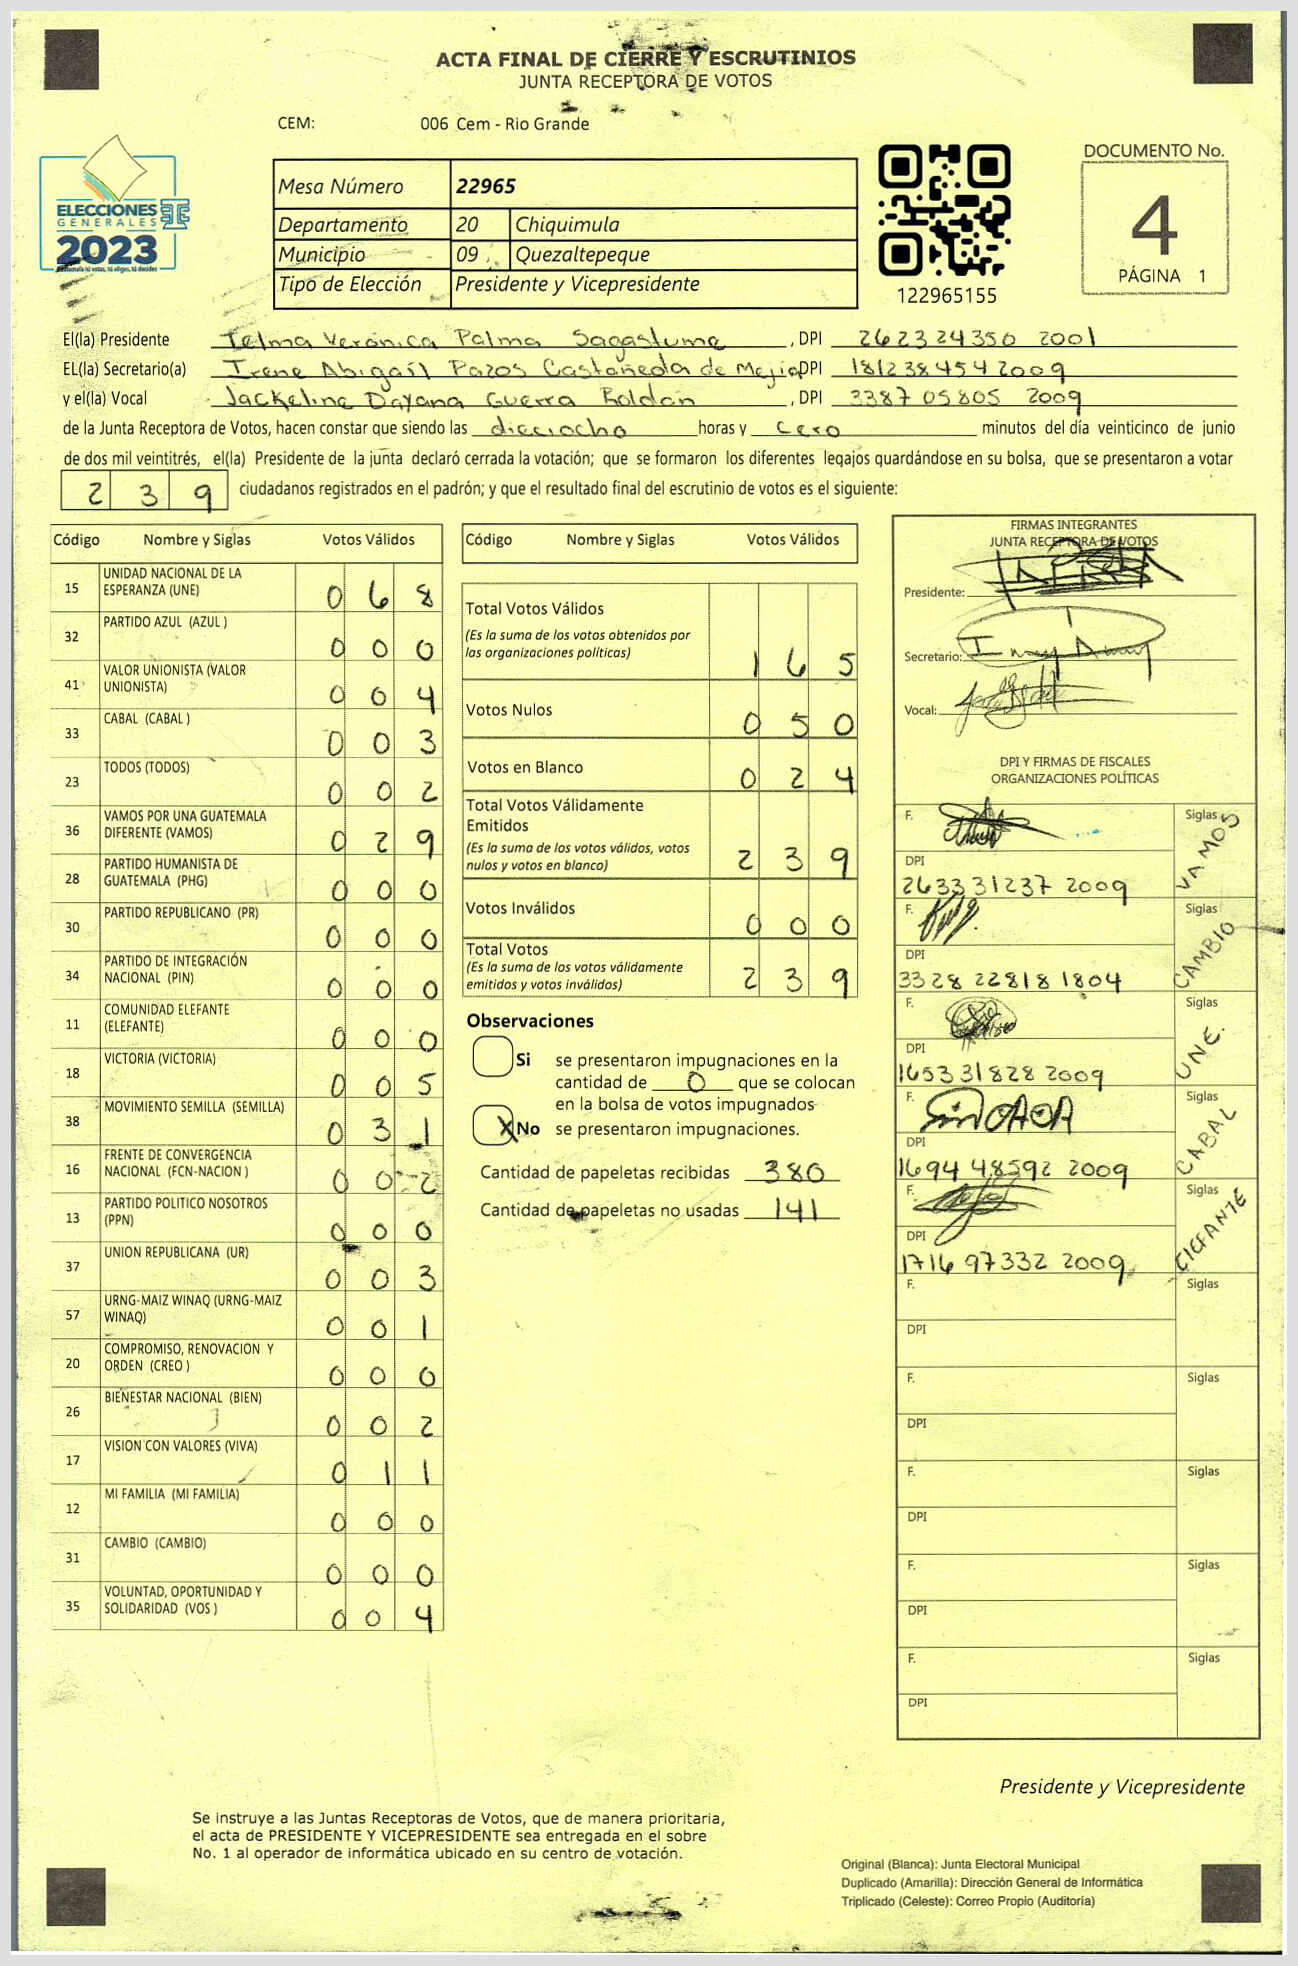 ACTA FINAL DE CIERRE Y ESCRUTINIOS
JUNTA RECEPTORA DE VOTOS
CEM: 006 Cem - Rio Grande
ELECCIONES
GENERALES
2023
Guatemala tú votas, tú eliges, tú decides
Mesa Número 22965
Departamento 20 Chiquimula
Municipio 09 Quezaltepeque
Tipo de Elección Presidente y Vicepresidente
122965155
DOCUMENTO No.
4
PÁGINA 1
El(la) Presidente Telma Verónica Palma Sagastume, DPI 262324350 2001
EL(la) Secretario(a) Irene Abigaíl Pazos Castañeda de Mejia DPI 181238454 2009
y el(la) Vocal Jackeline Dayana Guerra Roldán, DPI 3387 05805 2009
de la Junta Receptora de Votos, hacen constar que siendo las dieciocho horas y cero minutos del día veinticinco de junio
de dos mil veintitrés, el(la) Presidente de la junta declaró cerrada la votación; que se formaron los diferentes legajos quardándose en su bolsa, que se presentaron a votar
239 ciudadanos registrados en el padrón; y que el resultado final del escrutinio de votos es el siguiente:
Código Nombre y Siglas Votos Válidos
15 UNIDAD NACIONAL DE LA ESPERANZA (UNE) 0 6 8
32 PARTIDO AZUL (AZUL ) 0 0 0
41 VALOR UNIONISTA (VALOR UNIONISTA) 0 0 4
33 CABAL (CABAL ) 0 0 3
23 TODOS (TODOS) 0 0 2
36 VAMOS POR UNA GUATEMALA DIFERENTE (VAMOS) 0 2 9
28 PARTIDO HUMANISTA DE GUATEMALA (PHG) 0 0 0
30 PARTIDO REPUBLICANO (PR) 0 0 0
34 PARTIDO DE INTEGRACIÓN NACIONAL (PIN) 0 0 0
11 COMUNIDAD ELEFANTE (ELEFANTE) 0 0 0
18 VICTORIA (VICTORIA) 0 0 5
38 MOVIMIENTO SEMILLA (SEMILLA) 0 3 1
16 FRENTE DE CONVERGENCIA NACIONAL (FCN-NACION ) 0 0 2
13 PARTIDO POLITICO NOSOTROS (PPN) 0 0 0
37 UNION REPUBLICANA (UR) 0 0 3
57 URNG-MAIZ WINAQ (URNG-MAIZ WINAQ) 0 0 1
20 COMPROMISO, RENOVACION Y ORDEN (CREO ) 0 0 0
26 BIENESTAR NACIONAL (BIEN) 0 0 2
17 VISION CON VALORES (VIVA) 0 1 1
12 MI FAMILIA (MI FAMILIA) 0 0 0
31 CAMBIO (CAMBIO) 0 0 0
35 VOLUNTAD, OPORTUNIDAD Y SOLIDARIDAD (VOS ) 0 0 4
Código Nombre y Siglas Votos Válidos
Total Votos Válidos
(Es la suma de los votos obtenidos por
las organizaciones políticas) 1 6 5
Votos Nulos 0 5 0
Votos en Blanco 0 2 4
Total Votos Válidamente
Emitidos
(Es la suma de los votos válidos, votos
nulos y votos en blanco) 2 3 9
Votos Inválidos 0 0 0
Total Votos
(Es la suma de los votos válidamente
emitidos y votos inválidos) 2 3 9
Observaciones
Si se presentaron impugnaciones en la
cantidad de 0 que se colocan
en la bolsa de votos impugnados
X No se presentaron impugnaciones.
Cantidad de papeletas recibidas 380
Cantidad de papeletas no usadas 141
FIRMAS INTEGRANTES
JUNTA RECEPTORA DE VOTOS
Presidente:
Secretario:
Vocal:
DPI Y FIRMAS DE FISCALES
ORGANIZACIONES POLÍTICAS
F. Siglas VAMOS
DPI
2633 31237 2009
F. Siglas CAMBIO
DPI
3328 22818 1804
F. Siglas UNE.
DPI
1653 31828 2009
F. Siglas CABAL
DPI
1694 48592 2009
F. Siglas ElEFANTE
DPI
1716 97332 2009
F. Siglas
DPI
F. Siglas
DPI
F. Siglas
DPI
F. Siglas
DPI
F. Siglas
DPI
Presidente y Vicepresidente
Se instruye a las Juntas Receptoras de Votos, que de manera prioritaria,
el acta de PRESIDENTE Y VICEPRESIDENTE sea entregada en el sobre
No. 1 al operador de informática ubicado en su centro de votación.
Original (Blanca): Junta Electoral Municipal
Duplicado (Amarilla): Dirección General de Informática
Triplicado (Celeste): Correo Propio (Auditoría)